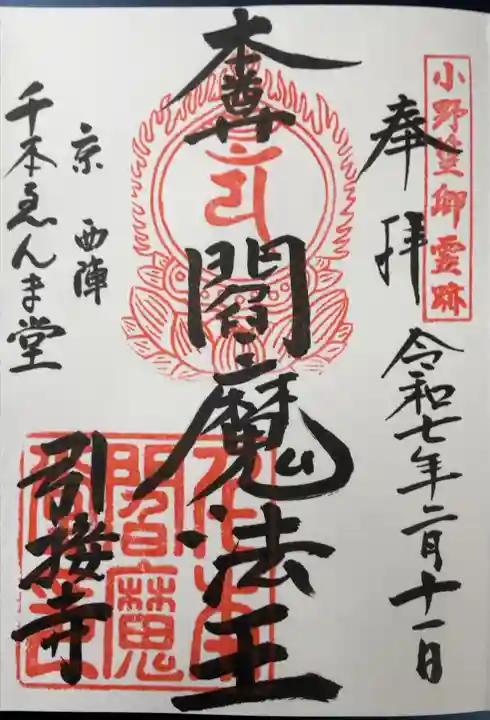 小野篁卿霊跡
奉拝
令和七年二月十一日
本尊
閻魔法王
京 西陣
千本ゑんま堂
引接寺